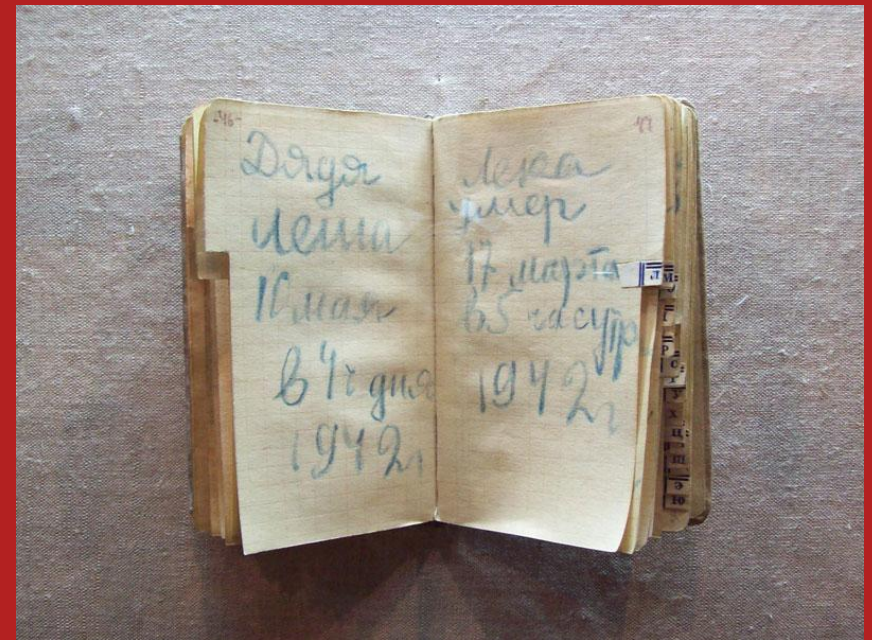 -46-
Дядя
Леша
10 мая
в 4ч дня
1942г
47
Лека
умер
17 марта
в 5 часутр
1942г
Л М
Р
С
У
Х
Ц
Э
Ю